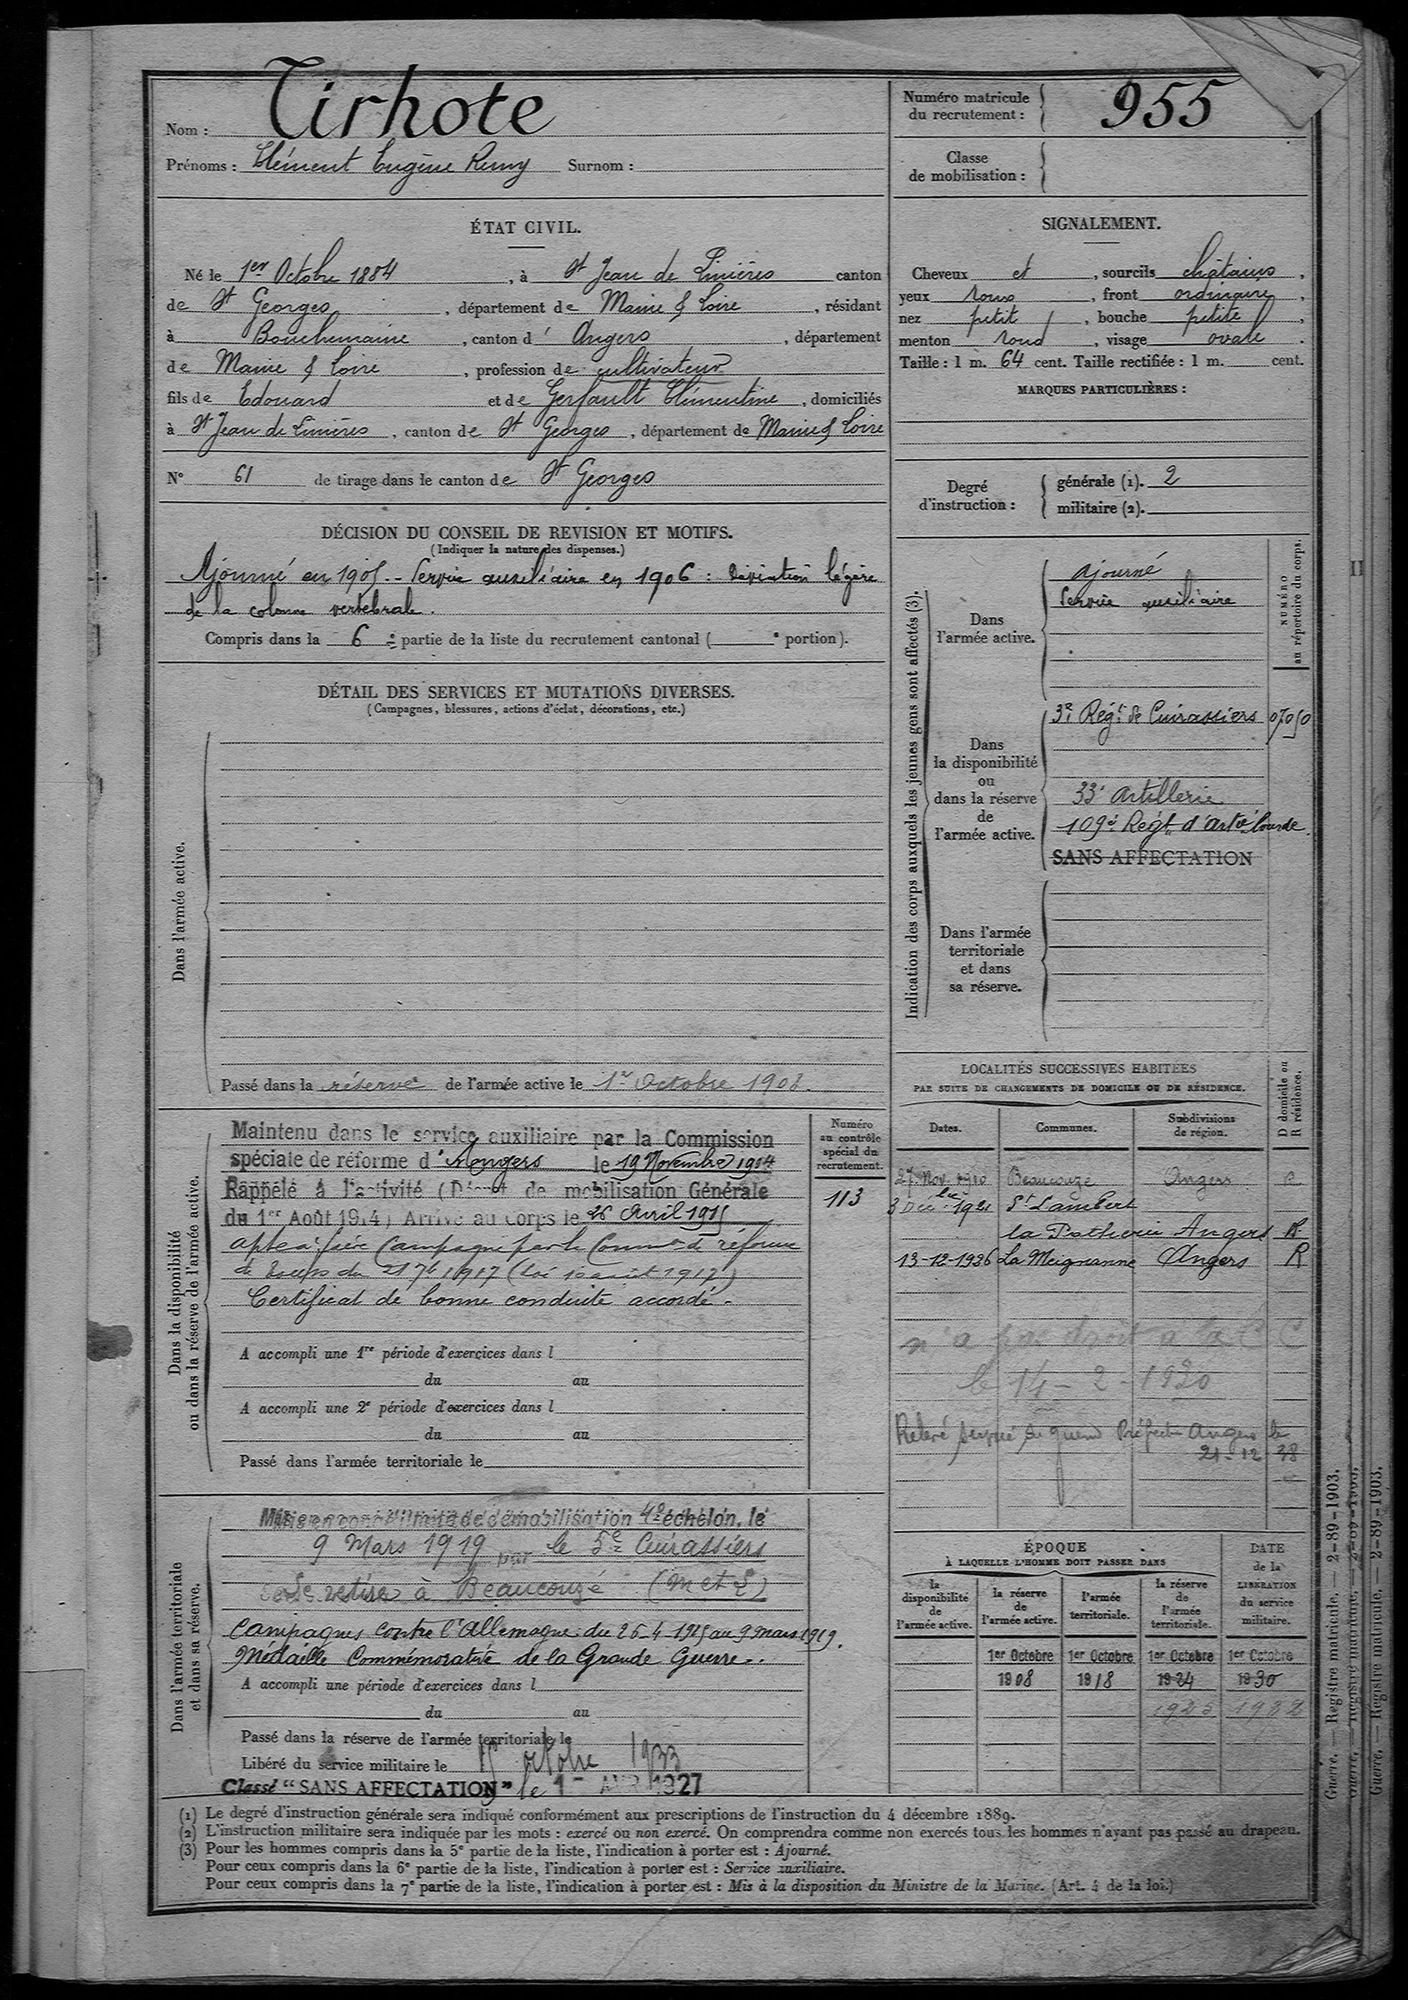 Nom : Tirhote
Prénoms : Clément Eugène Remy Surnom :
Numéro matricule du recrutement : 955
Classe de mobilisation :
ÉTAT CIVIL.
Né le 1er Octobre 1884, à St Jean de Linières canton
de St Georges, département de Maine & Loire, résidant
à Bouchemaine, canton d' Angers, département
de Maine & Loire, profession de cultivateur
fils de Edouard et de Gerfault Clémentine, domiciliés
à St Jean de Linières, canton de St Georges, département de Maine & Loire
N° 61 de tirage dans le canton de St Georges
SIGNALEMENT.
Cheveux et, sourcils châtains,
yeux roux, front ordinaire,
nez petit, bouche petite,
menton rond, visage ovale.
Taille : 1 m. 64 cent. Taille rectifiée : 1 m. cent.
MARQUES PARTICULIÈRES :
Degré d'instruction :
générale (1). 2
militaire (2).
DÉCISION DU CONSEIL DE REVISION ET MOTIFS.
(Indiquer la nature des dispenses.)
Ajourné en 1905 .- Service auxiliaire en 1906 : Déviation légère
de la colonne vertébrale.
Compris dans la 6e partie de la liste du recrutement cantonal ( e portion).
DÉTAIL DES SERVICES ET MUTATIONS DIVERSES.
(Campagnes, blessures, actions d'éclat, décorations, etc.)
Dans l'armée active.
Passé dans la réserve de l'armée active le 1er Octobre 1908.
Indication des corps auxquels les jeunes gens sont affectés (3).
NUMÉRO
au répertoire du corps.
Dans
l'armée active.
Ajourné
Service auxiliaire
Dans
la disponibilité
ou
dans la réserve
de
l'armée active.
3e Régt de Cuirassiers
33e Artillerie
109e Régt d'Artie lourde
SANS AFFECTATION
Dans l'armée
territoriale
et dans
sa réserve.
Dans la disponibilité
ou dans la réserve de l'armée active.
Numéro
au contrôle
spécial du
recrutement.
113
Maintenu dans le service auxiliaire par la Commission
spéciale de réforme d'Angers le 19 Novembre 1914
Rappelé à l'activité (Décret de mobilisation Générale
du 1er Août 1914) Arrivé au corps le 26 Avril 1915
apte à faire Campagne par la Comm. de réforme
du 21 7bre 1917 (loi 10 août 1917)
Certificat de bonne conduite accordé.-
A accompli une 1re période d'exercices dans l
du au
A accompli une 2e période d'exercices dans l
du au
Passé dans l'armée territoriale le
LOCALITÉS SUCCESSIVES HABITÉES
PAR SUITE DE CHANGEMENTS DE DOMICILE OU DE RÉSIDENCE.
D domicile ou
R résidence.
Dates. Communes. Subdivisions de région.
27 Nov. 1910 Beaucouzé Angers
3 Déc. 1921 St Lambert
la Potherie Angers R
13-12-1926 La Meignanne Angers R
n'a pas droit à la C C
le 14 - 2 - 1930
Relevé Préfect. Angers le
21-12 38
Dans l'armée territoriale
et dans sa réserve.
démobilisation 4e échelon, le
9 Mars 1919 par le 5e Cuirassiers
Se retire à Beaucouzé (M et L)
Campagnes contre l'Allemagne : du 26-4-1915 au 9 mars 1919.
Médaille Commémorative de la Grande Guerre..
A accompli une période d'exercices dans l
du au
Passé dans la réserve de l'armée territoriale le
Libéré du service militaire le 15 octobre 1933
Classé "SANS AFFECTATION" le 1er 1927
ÉPOQUE
À LAQUELLE L'HOMME DOIT PASSER DANS
DATE
de la
LIBÉRATION
du service
militaire.
la disponibilité de l'armée active.
la réserve de l'armée active.
l'armée territoriale.
la réserve de l'armée territoriale.
1er Octobre 1er Octobre 1er Octobre 1er Octobre
1908 1918 1924 1930
1925 1932
(1) Le degré d'instruction générale sera indiqué conformément aux prescriptions de l'instruction du 4 décembre 1889.
(2) L'instruction militaire sera indiquée par les mots : exercé ou non exercé. On comprendra comme non exercés tous les hommes n'ayant pas passé au drapeau.
(3) Pour les hommes compris dans la 5e partie de la liste, l'indication à porter est : Ajourné.
Pour ceux compris dans la 6e partie de la liste, l'indication à porter est : Service auxiliaire.
Pour ceux compris dans la 7e partie de la liste, l'indication à porter est : Mis à la disposition du Ministre de la Marine. (Art. 4 de la loi.)
Guerre. — Registre matricule. — 2-89-1903.
Guerre. — Registre matricule. — 2-89-1903.
Guerre. — Registre matricule. 2-89-1903.